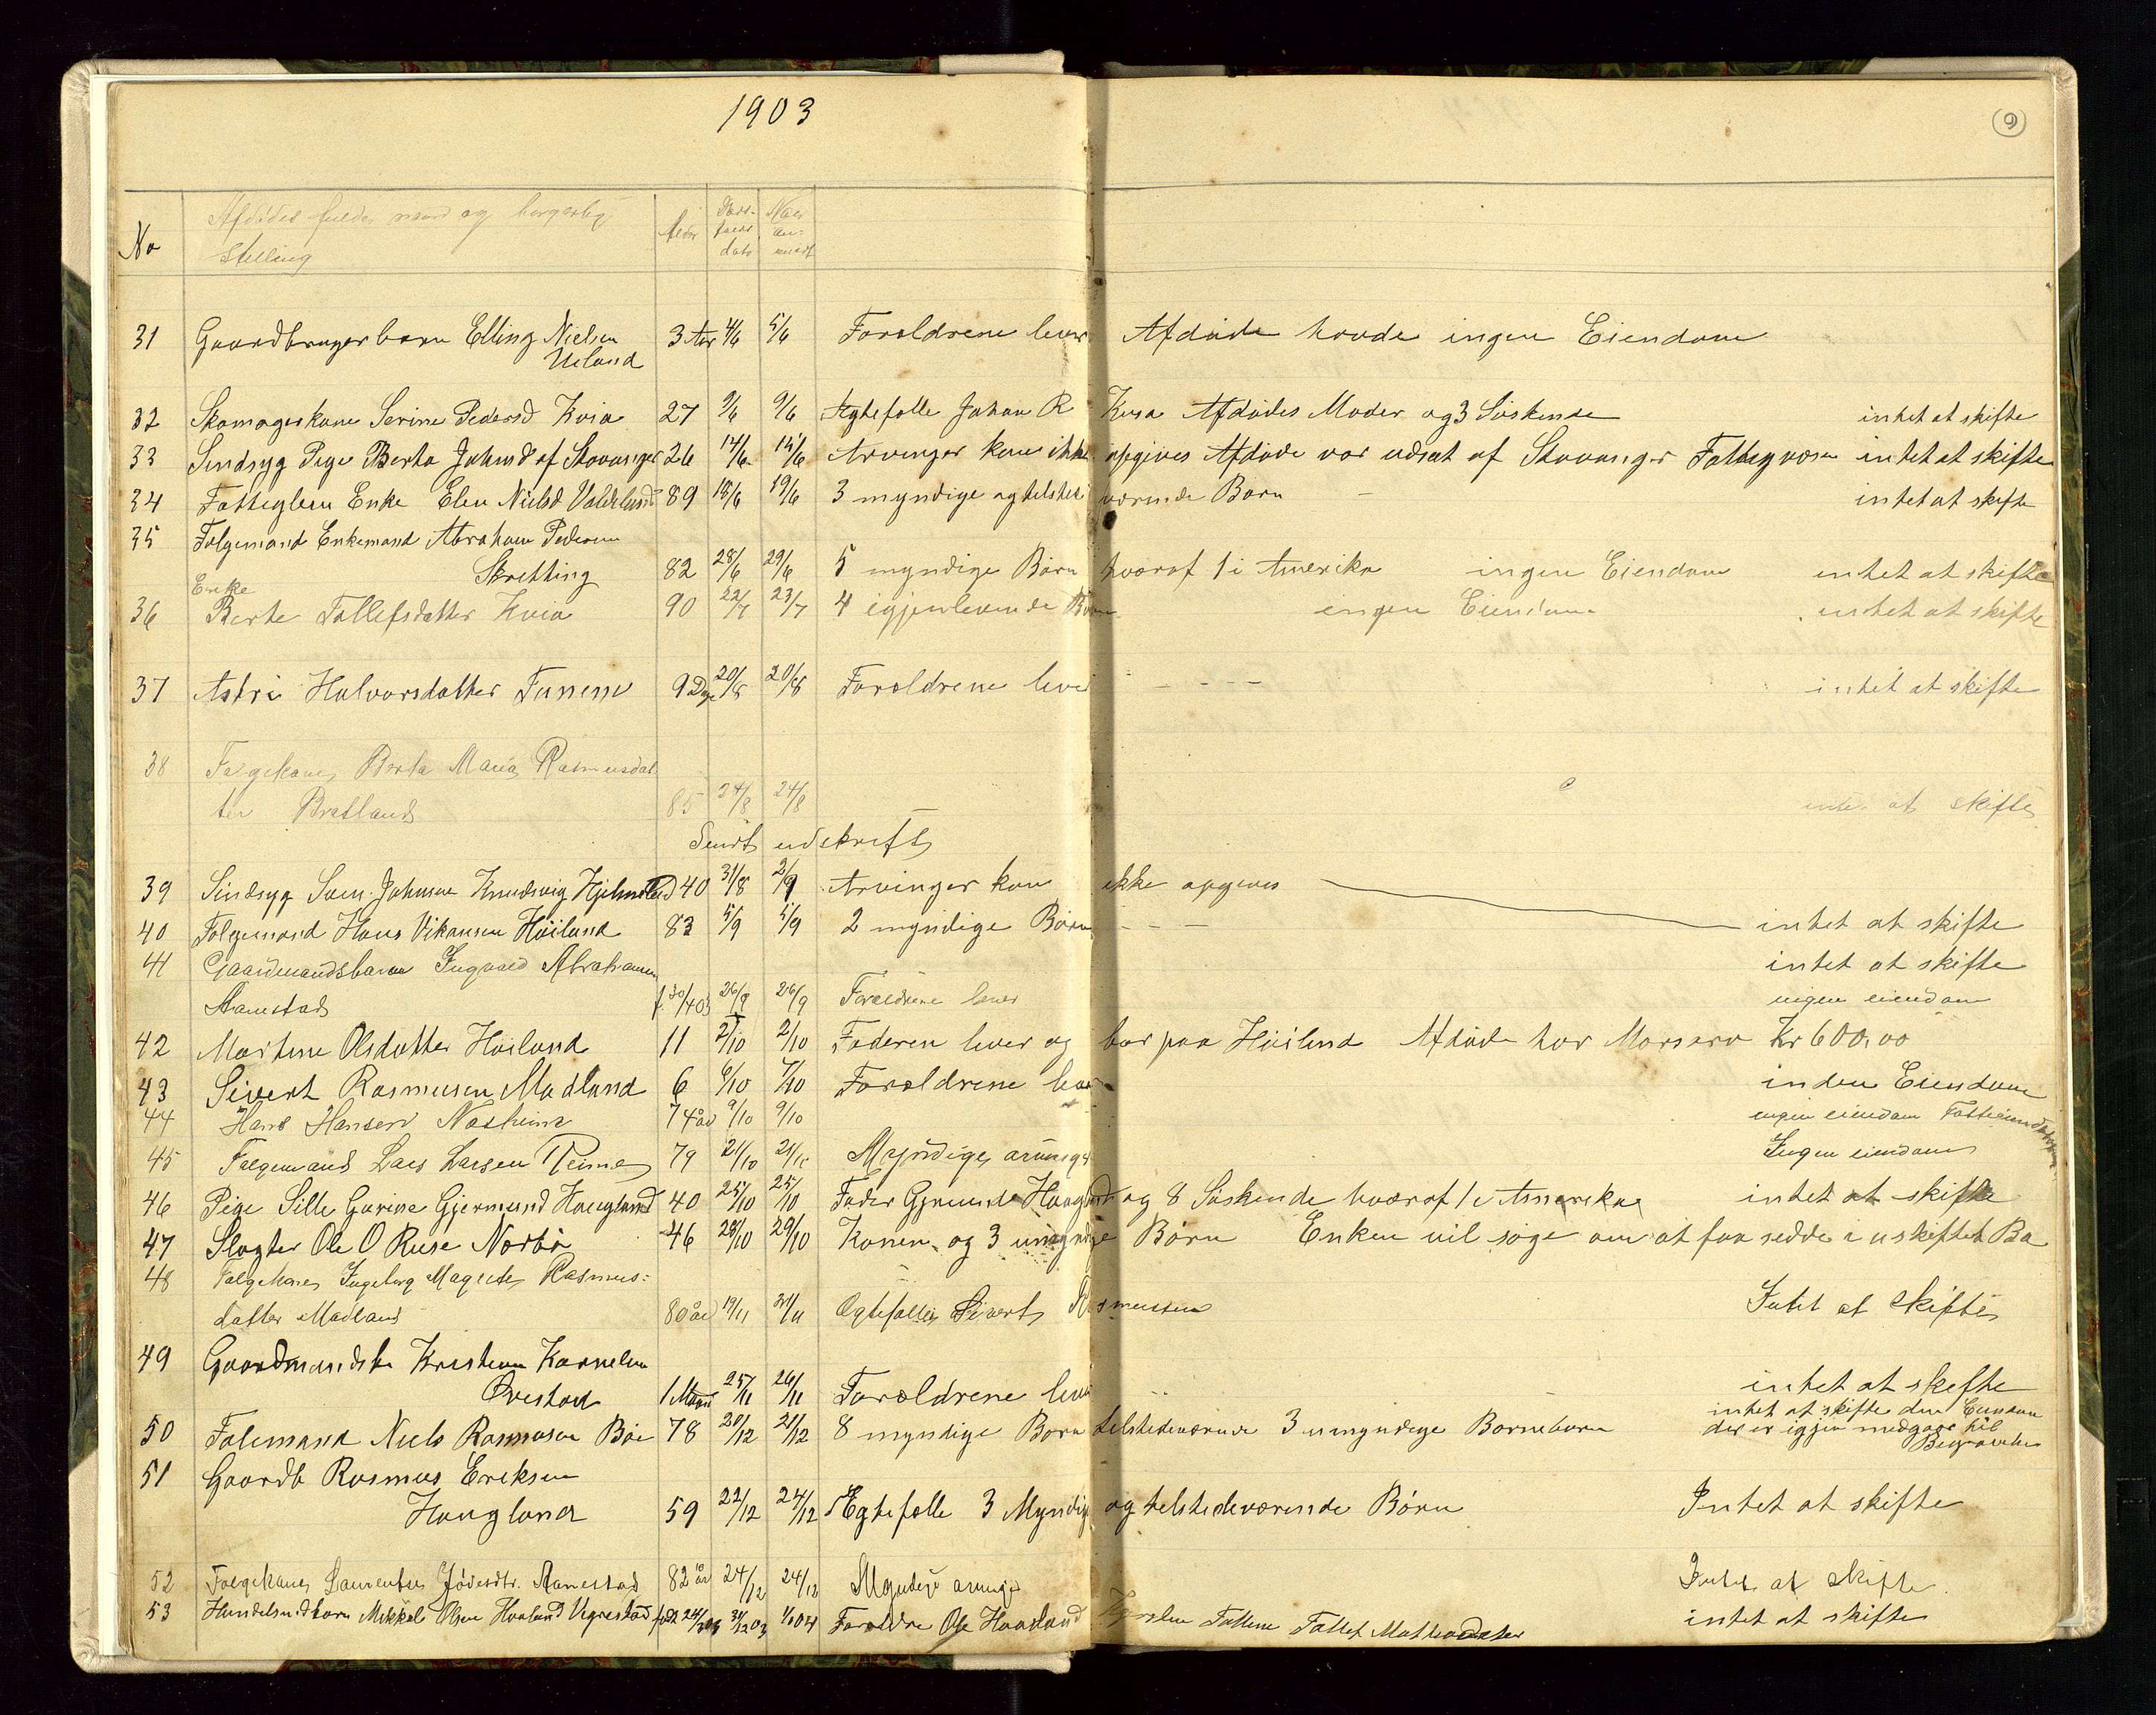 1903
9
No Afdødes fulde navn og borgerlig stilling Alder Døds-faldsdato Naar an-meldt
31 Gaardbrugerbarn Elling Nielsen 3 Aar 4/6 5/6 Forældrene lever Afdøde havde ingen Eiendom
Ueland
32 Skomagerkone Serine Pedersd Kvia 27 9/6 9/6 Ægtefælle Johan R Kvia Afdødes Moder og 3 Søskende intet at skifte
33 Sindsyg Pige Berta Johnsd af Stavanger 26 14/6 15/6 Arvinger kan ikke opgives Afdøde var udsat af Stavanger Fattigvæsen intet at skifte
34 Fattiglem Enke Elen Nielsd 89 18/6 19/6 3 myndige og tilstedeværende Børn – intet at skifte
35 Følgemand Enkemand Abraham Pedersen
Skretting 82 28/6 29/6 5 myndige Børn hvoraf 1 i Amerika ingen Eiendom intet at skifte
Enke
36 Berte Tollefsdatter Kvia 90 22/7 23/7 4 igjenlevende Børn ingen Eiendom intet at skifte
37 Astri Halvorsdatter 9 Dage 20/8 20/8 Forældrene lever - - - - intet at skifte
38 Følgekone Berta Maria Rasmusdat
ter Bratland 85 24/8 24/8 intet at skifte
Sendt udskrift
39 Sindsyg Johnsen Knudsvig 40 31/8 2/9 Arvinger kan ikke opgives
40 Følgemand Hans Høiland 83 5/9 5/9 2 myndige Børn - - - intet at skifte
41 Gaardmandsbarn Ingvald Abrahamsen intet at skifte
Aanestad 26/9 26/9 Forældrene lever ingen eiendom
42 Martine Olsdatter Høiland 11 2/10 2/10 Faderen lever og bor paa Høiland Afdøde har Morsarv Kr 600,00
43 Sivert Rasmusen Madland 6 6/10 7/10 Forældrene lever inden Eiendom
44 Hans Hansen Næsheim 74 år 9/10 9/10 ingen eiendom
45 Følgemand Lars Larsen Reime 79 21/10 21/10 Myndige arvinger Ingen eiendom
46 Pige Sille Gurine Gjermund Haugland 40 25/10 25/10 Fader Haugland og 8 Søskende hvoraf 1 i Amerika intet at skifte
47 Slagter Ole O Ruse Nærbø 46 28/10 29/10 Konen og 3 umyndige Børn Enken vil søge om at faa sidde i uskiftet Bo
48 Følgekone Ingeborg Rasmus=
datter Madland 80 år 19/11 21/11 Ægtefælle Sivert Rasmussen Intet at skifte
49 Kristian Kornelius
Ovestad 1 Maaned 25/11 26/11 Forældrene lever intet at skifte
50 Følemand Niels Rasmusen Bøe 78 20/12 21/12 8 myndige Børn tilstedeværende 3 umyndige Børnebørn intet at skifte den Eiendom
der er igjen medgaar til
Begravelse
51 Gaardb Rasmus Eriksen
Haugland 59 22/12 24/12 Ægtefælle 3 Myndige og tilstedeværende Børn Intet at skifte
52 Følgekone Laurentse Aanestad 82 år 24/12 24/12 Myndige arvinger Intet at skifte
53 Mikkel Olsen Haaland Vigrestad 31/12 03 1/1 04 Forældre Ole Haaland intet at skifte